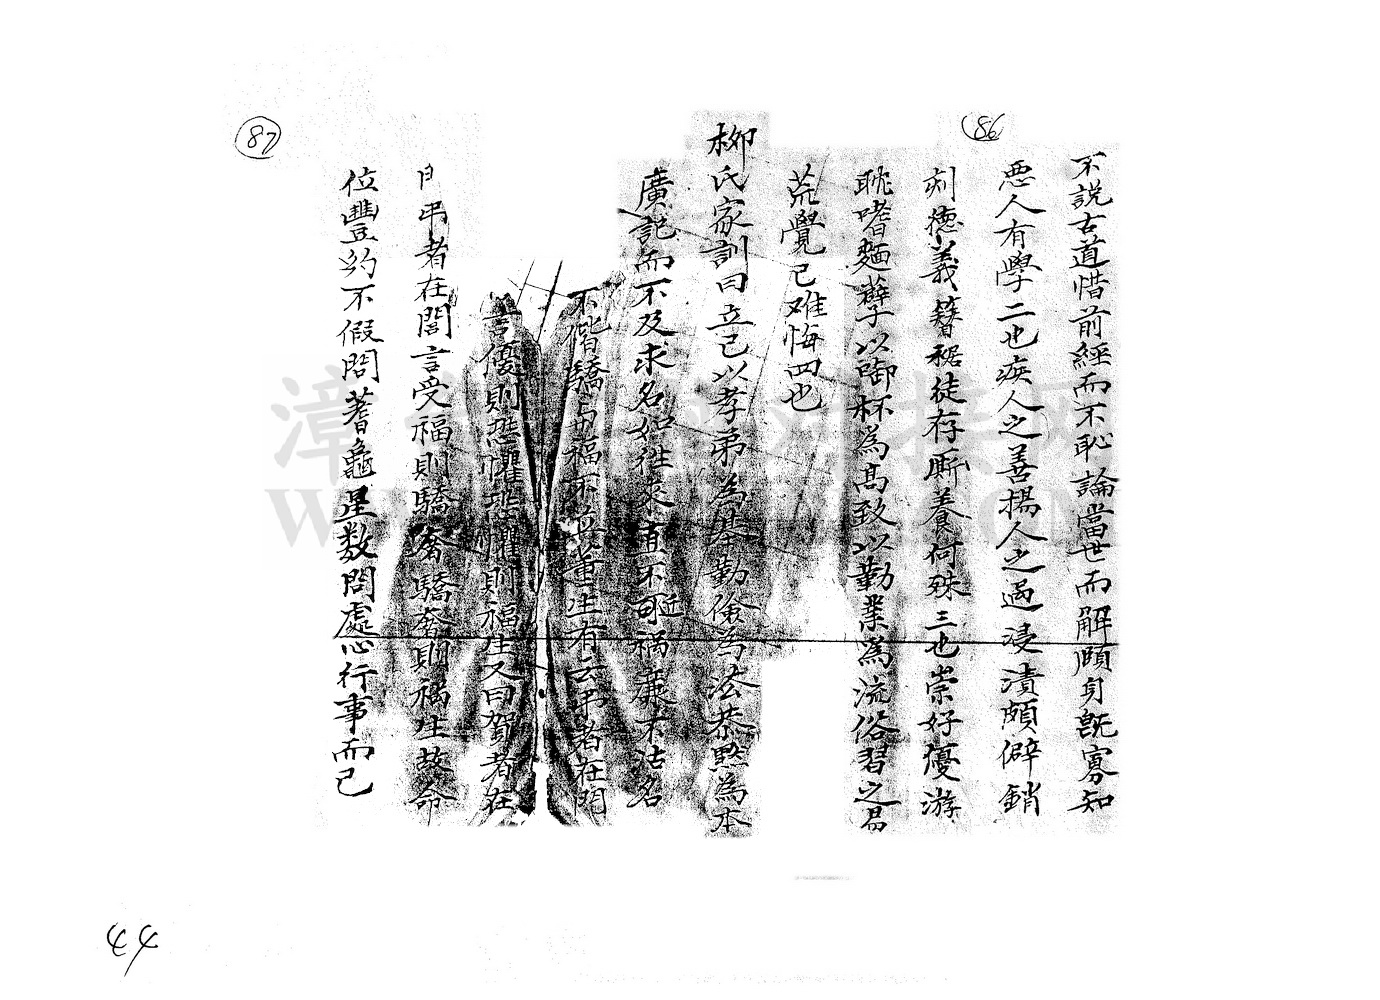 86
不説古道惜前經而不恥論當世而解頤身既寡知
惡人有學二也疾人之善揚人之過浸漬頗僻銷
刻德義簪裾徒存厮養何殊三也崇好優游
耽嗜麵蘖以啣杯為高致以勤業為流俗習之易
荒覺已难悔四也
柳氏家訓曰立己以孝弟為基勤儉為法恭黙為本
廣記而不及求名如徃求直不可近禍廉不沽名
不偕驕与福不並重生有云弔者在門
言憂則恐懼恐懼則福生又曰賀者在
門弔者在閭言受福則驕奢驕奢則禍生故命
位豐約不假問蓍龜星数問處心行事而已
87
44